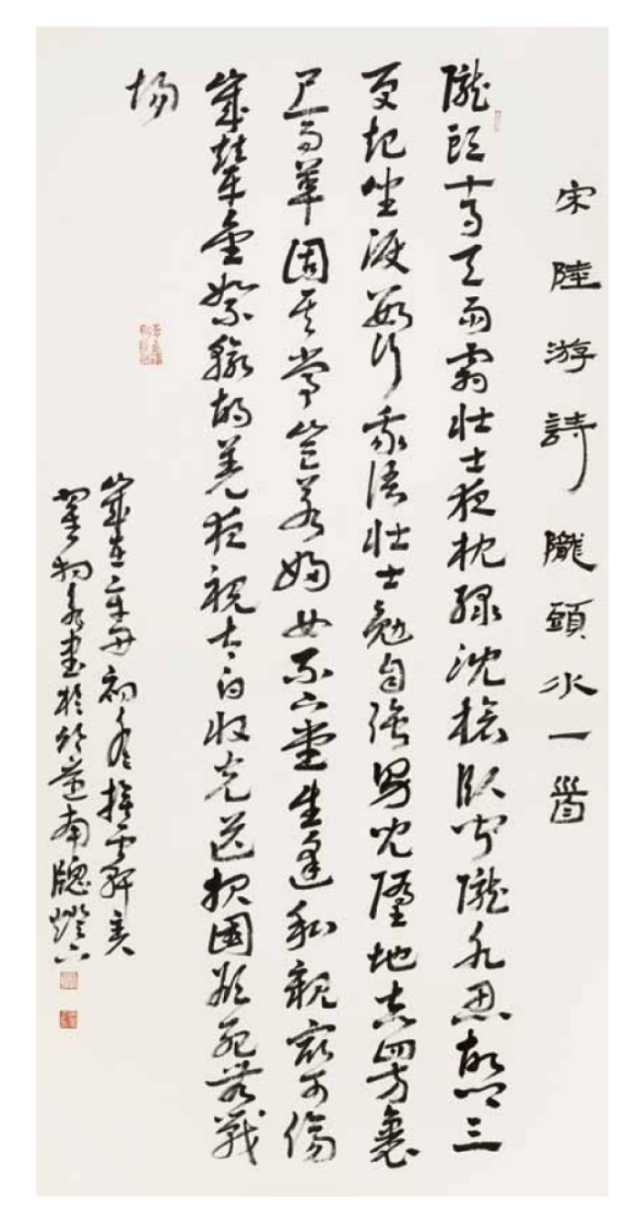 宋陸游詩隴頭水一首
隴頭十月天雨霜壯士夜枕綠沈槍臥聞隴水思故鄉三
更起坐淚數行我語壯士勉自強男兒墮地志四方裹
尸馬革固其常豈若婦女不下堂生逢和親最可傷
歲輦金絮輸胡羌夜視太白收光芒報國欲死無戰
場
歲在辛丑初冬雲軒
書於南牕燈下